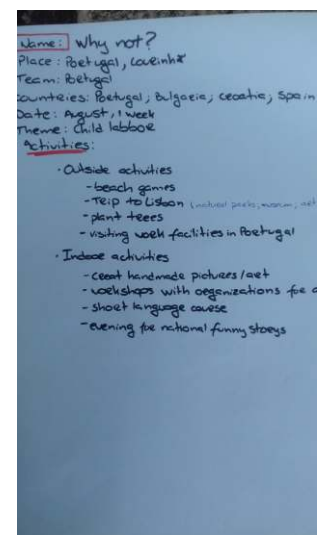 Name: Why not?
Place: Portugal, Lourinhã
Team: Portugal
Countries: Portugal; Bulgaria; Croatia; Spain
Date: August, 1 week
Theme: Child labbor
Activities:
· Outside activities
- beach games
- Trip to Lisbon (natural parks, museum, art
- plant trees
- visiting work facilities in Portugal
· Indoor activities
- creat handmade pictures/art
- workshops with organizations for
- short language course
- evening for national funny storys